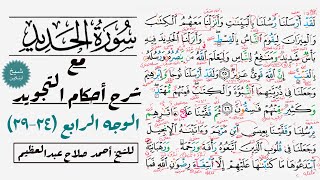 سُورَةُ الْحَدِيدِ
مع
شرح أحكام التجويد
الوجه الرابع (٢٤-٢٩)
للشيخ أحمد صلاح عبدالعظيم
لَقَدْ أَرْسَلْنَا رُسُلَنَا بِٱلْبَيِّنَٰتِ وَأَنزَلْنَا مَعَهُمُ ٱلْكِتَٰبَ
وَٱلْمِيزَانَ لِيَقُومَ ٱلنَّاسُ بِٱلْقِسْطِ وَأَنزَلْنَا ٱلْحَدِيدَ فِيهِ
بَأْسٌ شَدِيدٌ وَمَنَٰفِعُ لِلنَّاسِ وَلِيَعْلَمَ ٱللَّهُ مَن يَنصُرُهُۥ وَرُسُلَهُۥ
بِٱلْغَيْبِ إِنَّ ٱللَّهَ قَوِيٌّ عَزِيزٌ ٢٥ وَلَقَدْ أَرْسَلْنَا نُوحًا وَإِبْرَٰهِيمَ
وَجَعَلْنَا فِي ذُرِّيَّتِهِمَا ٱلنُّبُوَّةَ وَٱلْكِتَٰبَ فَمِنْهُم مُّهْتَدٍ
وَكَثِيرٌ مِّنْهُمْ فَٰسِقُونَ ٢٦ ثُمَّ قَفَّيْنَا عَلَىٰٓ ءَاثَٰرِهِم
بِرُسُلِنَا وَقَفَّيْنَا بِعِيسَى ٱبْنِ مَرْيَمَ وَءَاتَيْنَٰهُ ٱلْإِنجِيلَ
وَجَعَلْنَا فِي قُلُوبِ ٱلَّذِينَ ٱتَّبَعُوهُ رَأْفَةً وَرَحْمَةً وَرَهْبَانِيَّةً
ٱبْتَدَعُوهَا مَا كَتَبْنَٰهَا عَلَيْهِمْ إِلَّا ٱبْتِغَآءَ رِضْوَٰنِ ٱللَّهِ فَمَا